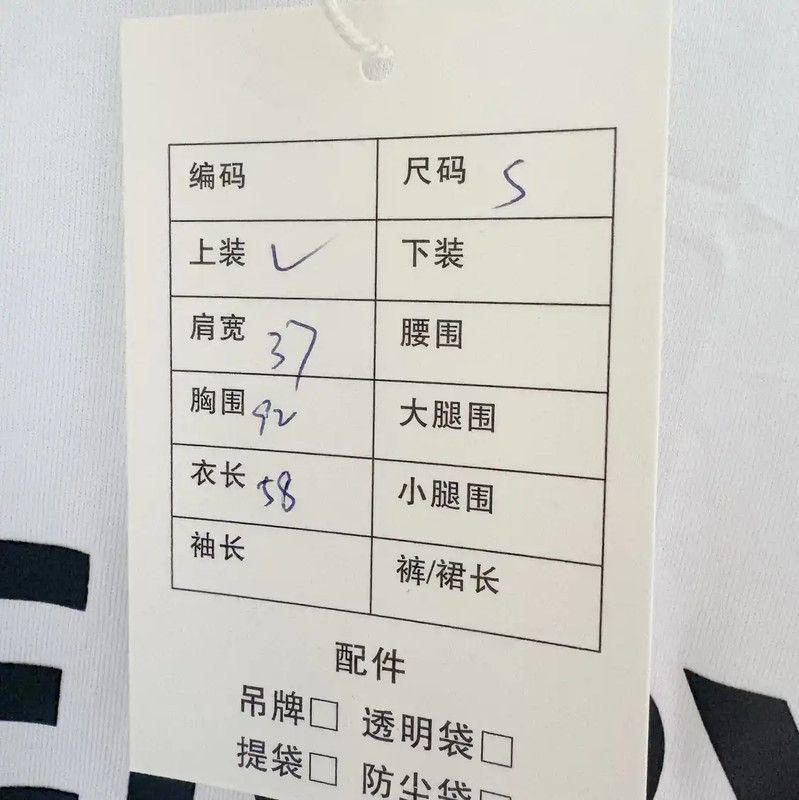 编码 尺码 S
上装 ✓ 下装
肩宽 37 腰围
胸围 92 大腿围
衣长 58 小腿围
袖长 裤/裙长
配件
吊牌□ 透明袋□
提袋□ 防尘袋□